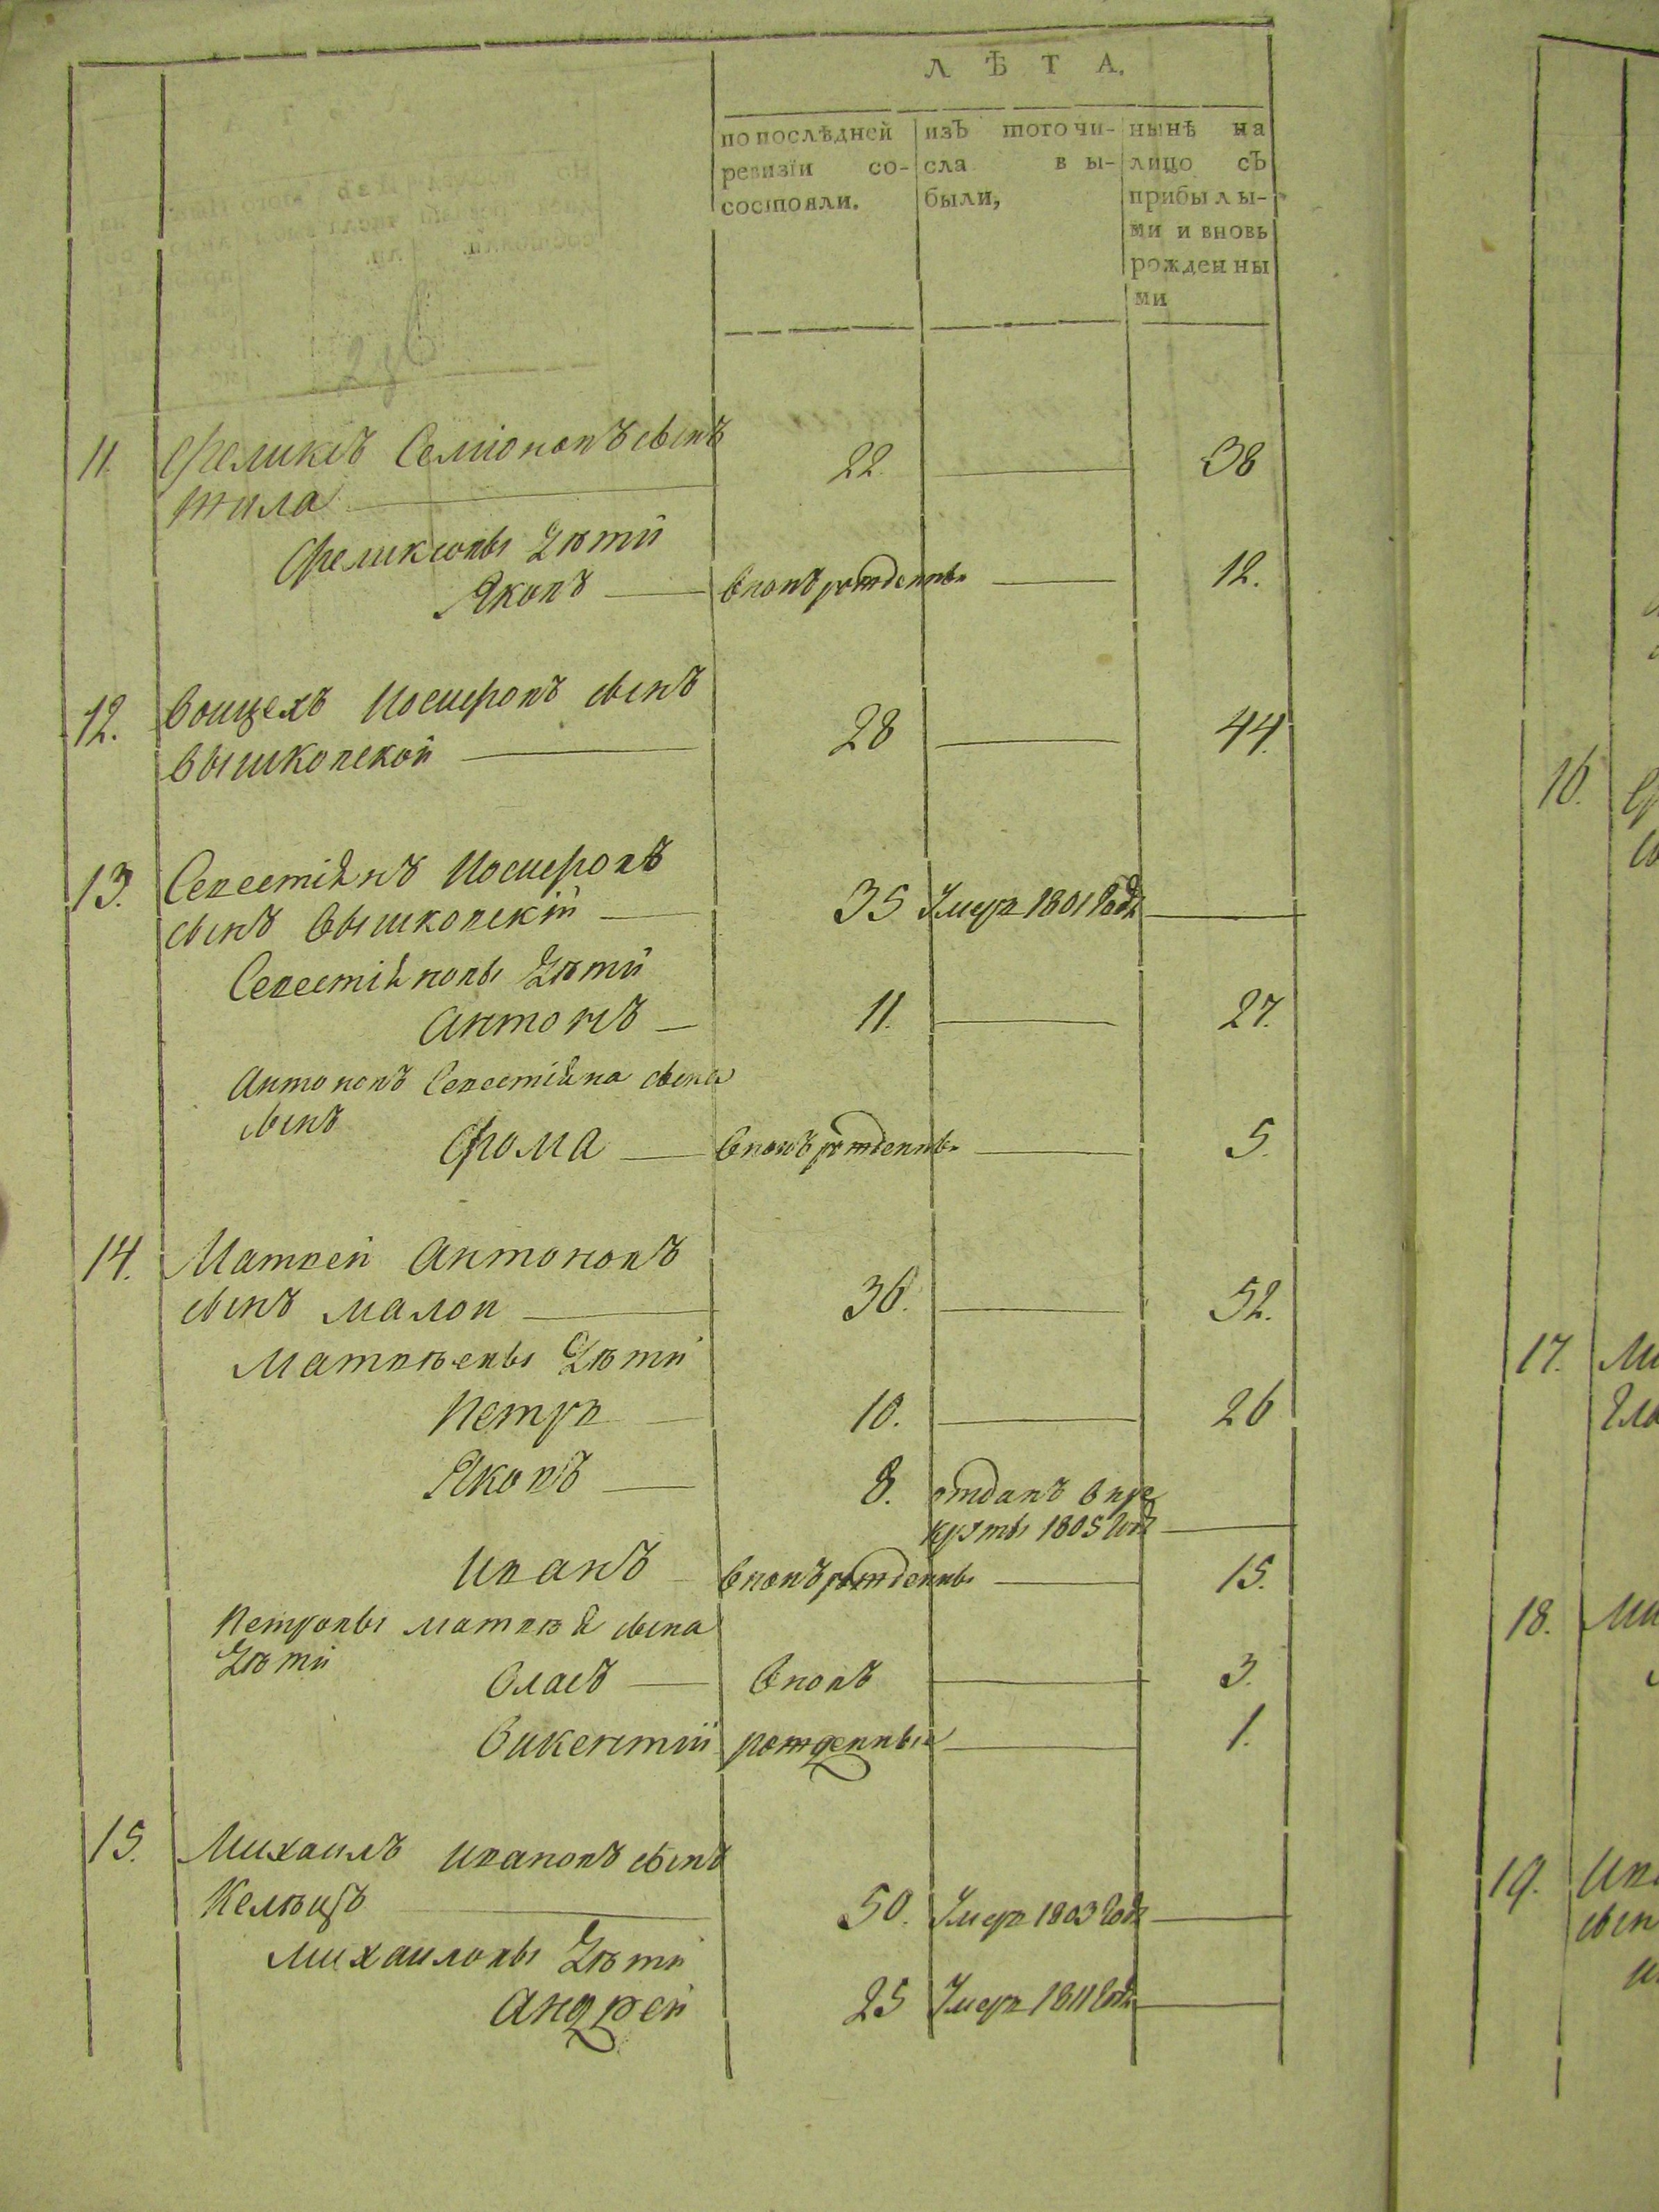 Л Ѣ Т А.
по послѣдней ревизіи со-состояли.
изъ того чи-сла вы-были,
нынѣ на лицо съ прибылы-ми и вновь рожденны ми
11. Феликсъ Семіоновъ сынъ
Жила 22. 38
Феликсовы дѣти
Яковъ вновъ рожденны 12.
12. Воицехъ Иосифовъ сынъ
Вышковской 28 44.
13. Севестіянъ Иосифовъ
сынъ Вышковскій 35 Умеръ 1801 года
Севестіяновы дѣти
Антонъ 11. 27.
Антоновъ Севестіяна сына
сынъ
Фома вновъ рожденны 5.
14. Матвей Антоновъ
сынъ Малой 36. 52.
Матвѣевы дѣти
Петръ 10. 26
Яковъ 8. отданъ в ре
круты 1805 года
Иванъ вновъ рожденны 15.
Петровы Матвѣя сына
дѣти
Власъ вновъ 3.
Викентій рожденныя 1.
15. Михаилъ Ивановъ сынъ
Келѣцъ 50. Умеръ 1803 года
Михаиловы дѣти
Андрей 25 Умеръ 1811 года
16.
17.
18.
19.